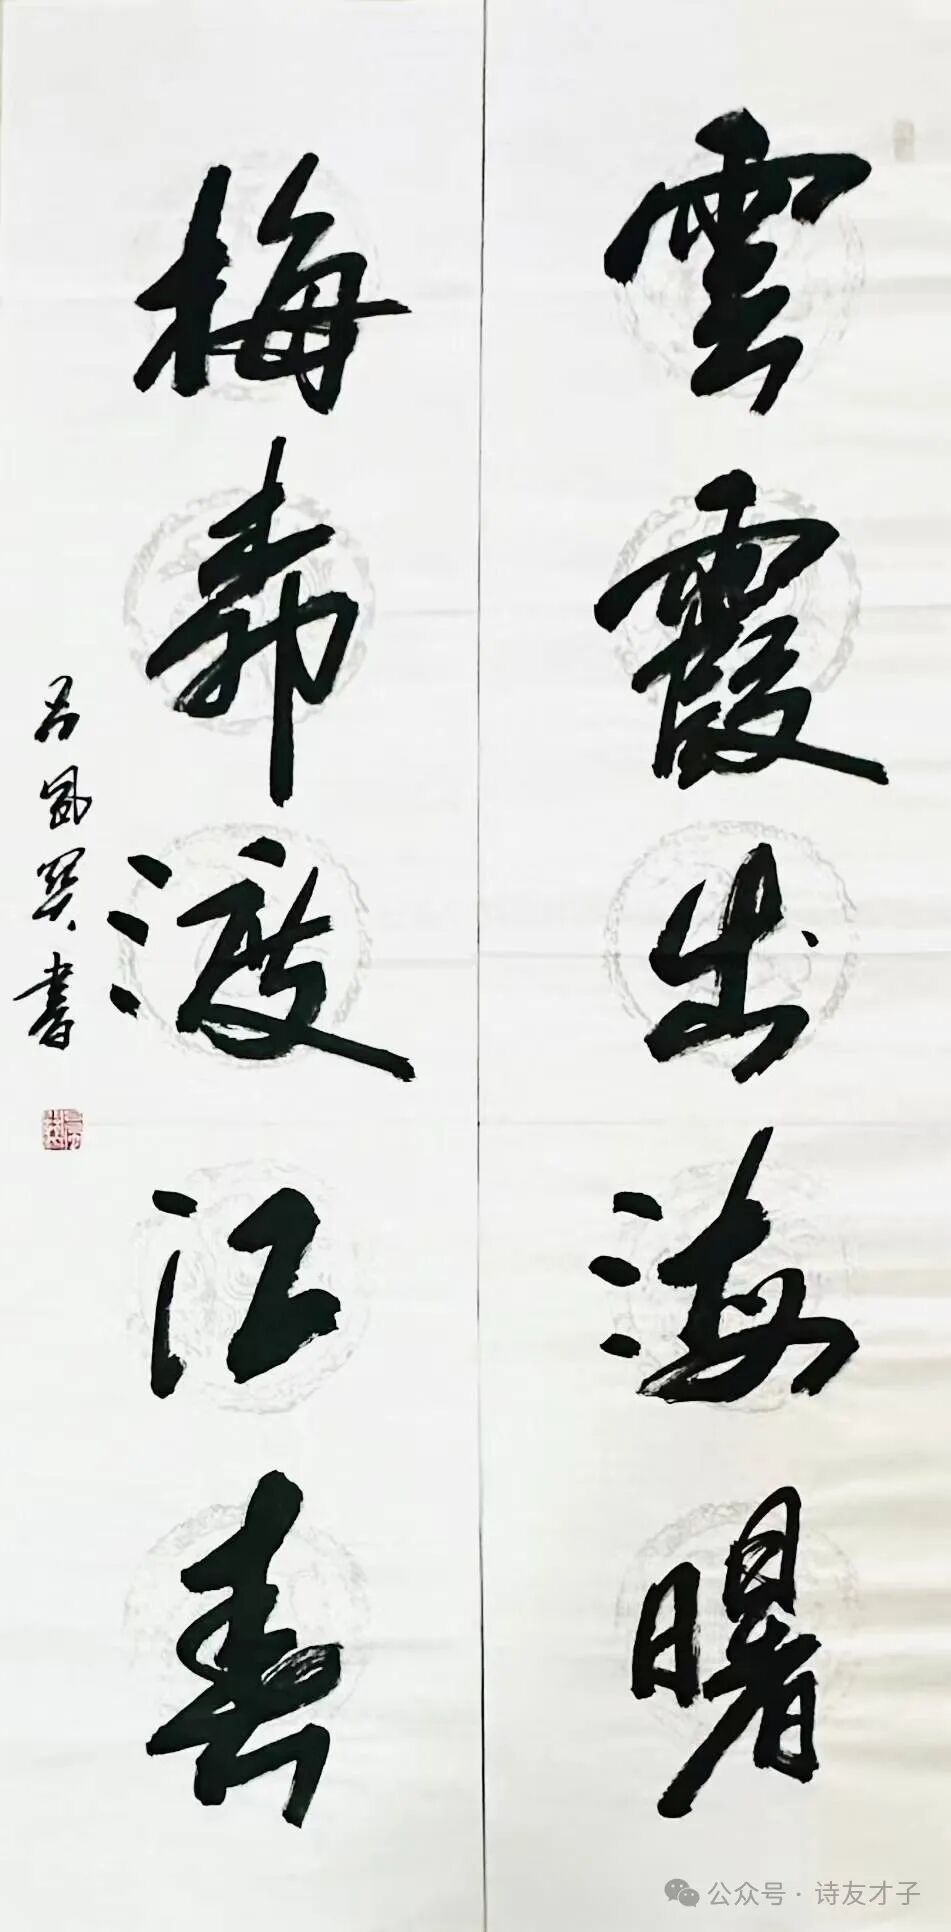 雲霞出海曙
梅柳渡江春
呂鳳 書
公众号·诗友才子